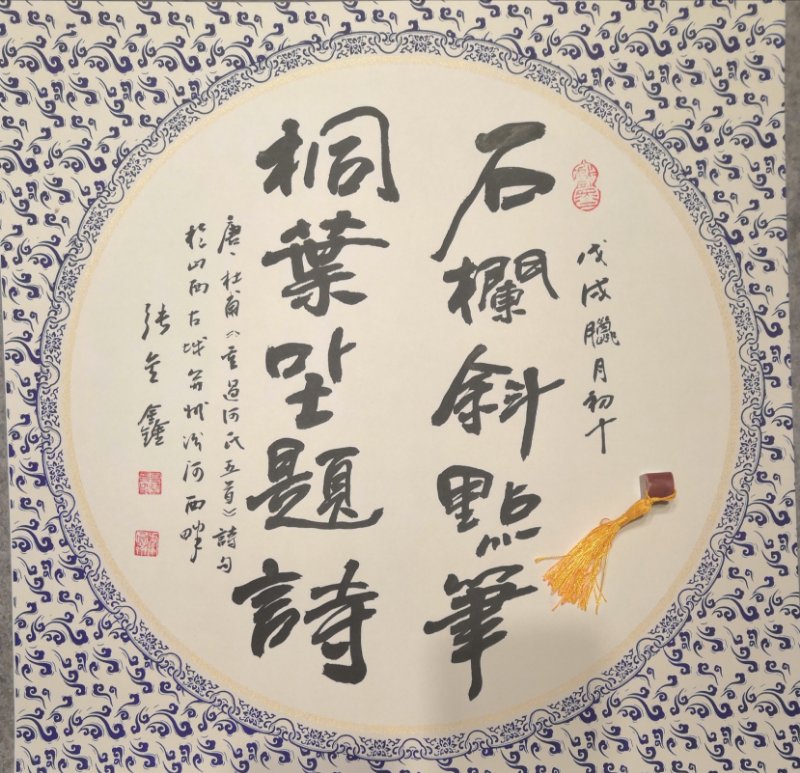 戊戌臘月初十
石欄斜點筆
桐葉坐題詩
唐、杜甫《重過何氏五首》詩句
於山西古城并州汾河西畔
張